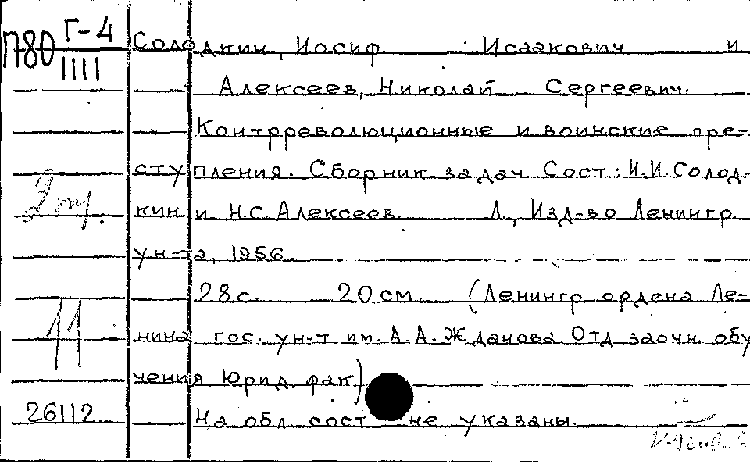 П80 Г-4
1111
Солодкин, Иосиф Исаакович и
Алексеев, Николай Сергеевич.
Контрреволюционные и воинские пре-
ступления. Сборник задач Сост.: И.И. Солод-
кин и Н.С. Алексеев. Л., Изд-во Ленингр.
ун-та, 1956
28 с. 20 см (Ленингр. ордена Ле-
нина гос. ун-т им. А.А. Жданова Отд заочн. обу
чения Юрид. фак)
26112 На обл сост не указаны.